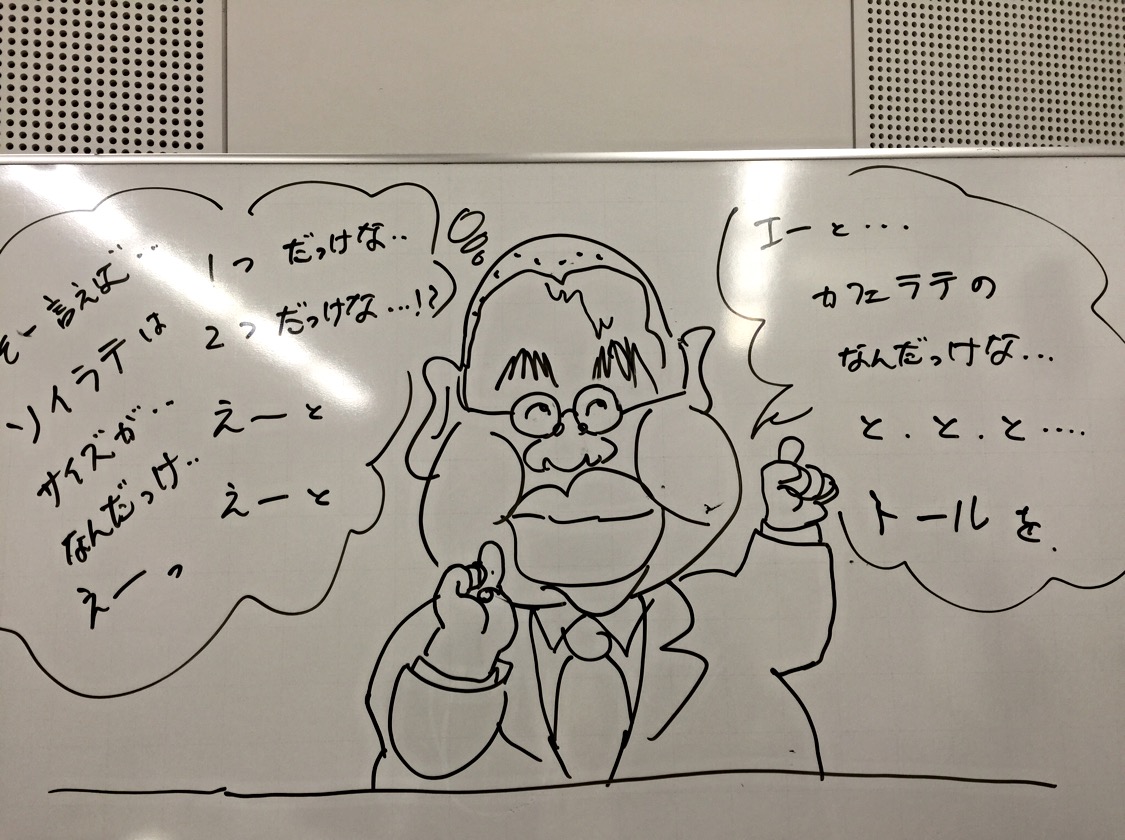 そー言えば‥
ソイラテは
サイズが‥
なんだっけ‥
えーっ
1つ だっけな‥
2つ だっけな…!?
えーと
えーと
エーと・・・
カフェラテの
なんだっけな…
と.と.と‥‥
トールを.